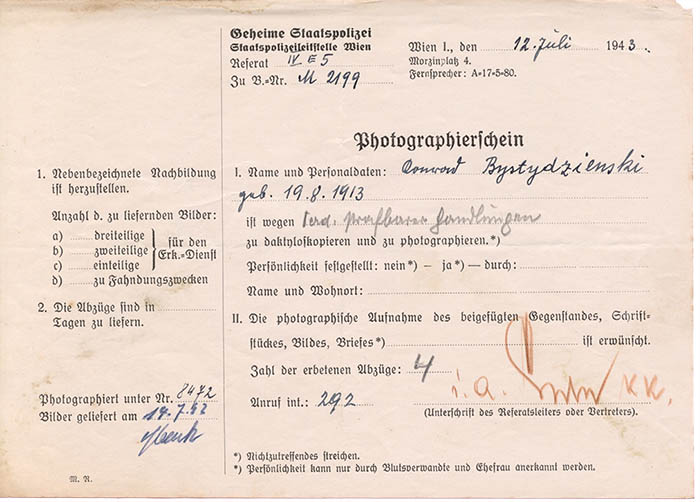 Geheime Staatspolizei
Staatspolizeileitstelle Wien
Referat IV E 5
Zu B.=Nr. M 2199
Wien I., den 12. Juli 1943.
Morzinplatz 4.
Fernsprecher: A=17=5=80.
Photographierschein
1. Nebenbezeichnete Nachbildung
ist herzustellen.
Anzahl d. zu liefernden Bilder:
a) ........ dreiteilige
b) ........ zweiteilige
c) ........ einteilige
für den
Erk.=Dienst
d) ........ zu Fahndungszwecken
2. Die Abzüge sind in
Tagen zu liefern.
Photographiert unter Nr. 8472
Bilder geliefert am
M. R.
I. Name und Personaldaten: Konrad Bystydzienski
geb. 19.8.1913
ist wegen Verd. strafbarer Handlungen
zu daktyloskopieren und zu photographieren.*)
Persönlichkeit festgestellt: nein*) – ja*) – durch:
Name und Wohnort:
II. Die photographische Aufnahme des beigefügten Gegenstandes, Schrift=
stückes, Bildes, Briefes*) ist erwünscht.
Zahl der erbetenen Abzüge: 4
Anruf int.: 292
i.A. KK.
(Unterschrift des Referatsleiters oder Vertreters).
*) Nichtzutreffendes streichen.
*) Persönlichkeit kann nur durch Blutsverwandte und Ehefrau anerkannt werden.